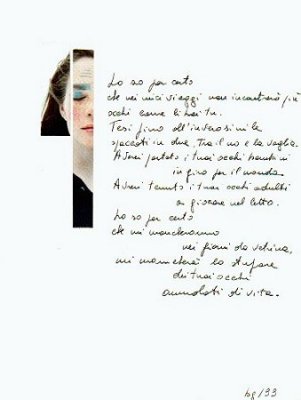 Lo so per certo
che nei miei viaggi non incontrerò più
occhi come li hai tu.
Tesi fino all'inverosimile
spaccati in due, tra il no e la voglia.
Avrei portato i tuoi occhi bambini
in giro per il mondo.
Avrei tenuto i tuoi occhi adulti
a giocare nel letto.
Lo so per certo
che mi mancheranno
nei giorni da
mi mancherà lo stupore
dei tuoi occhi
ammalati di vita.
bg/33